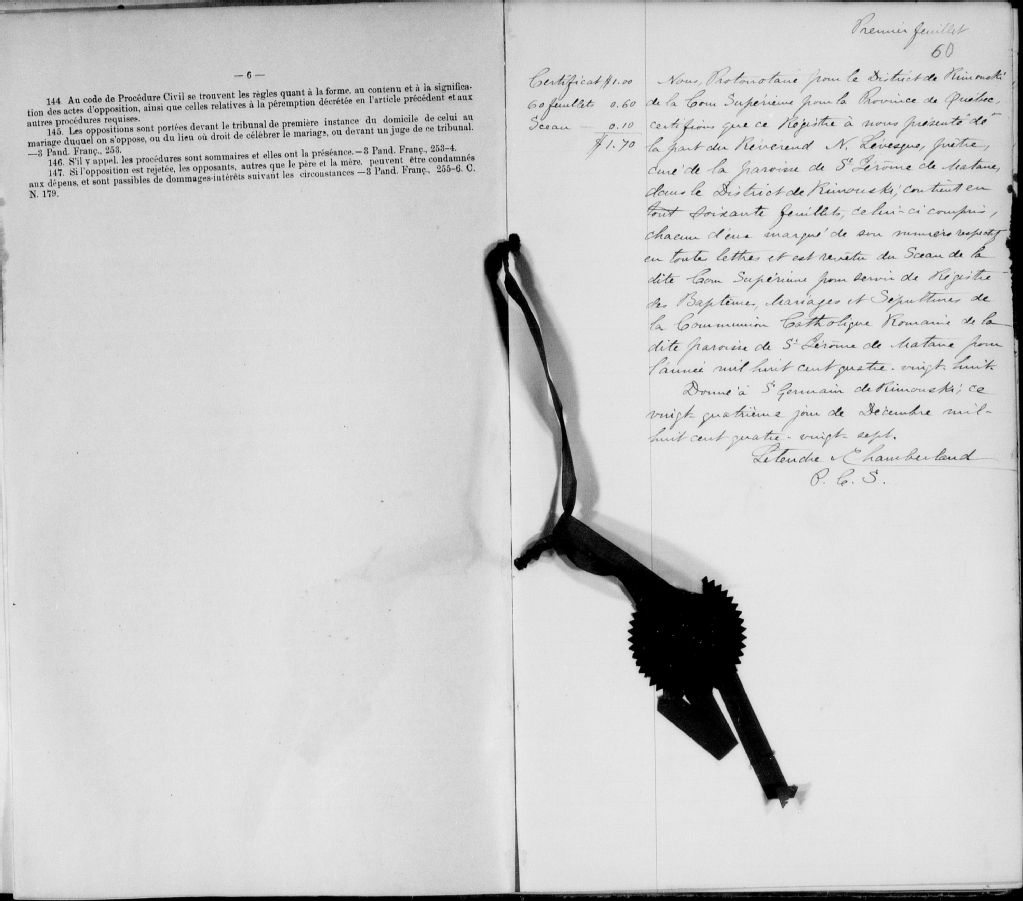 — 6 —
144 Au code de Procédure Civil se trouvent les règles quant à la forme, au contenu et à la significa-
tion des actes d'opposition, ainsi que celles relatives à la péremption décrétée en l'article précédent et aux
autres procédures requises.
145. Les oppositions sont portées devant le tribunal de première instance du domicile de celui au
mariage duquel on s'oppose, ou du lieu où droit de célébrer le mariage, ou devant un juge de ce tribunal.
—3 Pand. Franç., 253.
146. S'il y appel, les procédures sont sommaires et elles ont la préséance.—3 Pand. Franç., 253-4.
147. Si l'opposition est rejetée, les opposants, autres que le père et la mère, peuvent être condamnés
aux dépens, et sont passibles de dommages-intérêts suivant les circonstances —3 Pand. Franç., 255-6. C.
N. 179.
Premier feuillet
60
Certificat $1.00
60 feuillets 0.60
Sceau — 0.10
$1.70
Nous, Protonotaire pour le District de Rimouski
de la Cour Supérieure pour la Province de Québec,
certifions que ce Régistre à nous présenté de
la part du Révérend N. Lévesque, prêtre,
curé de la paroisse de St Jérôme de Matane,
dans le District de Rimouski, contient en
tout soixante feuillets, celui-ci compris,
chacun d'eux marqué de son numéro respectif
en toutes lettres et est revêtu du Sceau de la
dite Cour Supérieure pour servir de Régistre
des Baptêmes, Mariages et Sépultures de
la Communion Catholique Romaine de la
dite paroisse de St Jérôme de Matane pour
l'année mil huit cent quatre-vingt-huit.
Donné à St Germain de Rimouski, ce
vingt-quatrième jour de Décembre mil-
huit cent quatre-vingt-sept.
Letendre & Chamberland
P. C. S.